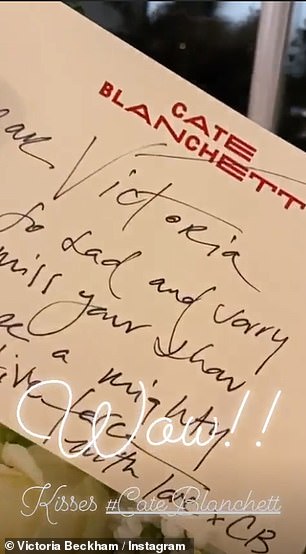 CATE
BLANCHETT
Victoria
So sad and sorry
miss your show
a mighty
Wow!!
Kisses #CateBlanchett
CB
© Victoria Beckham / Instagram